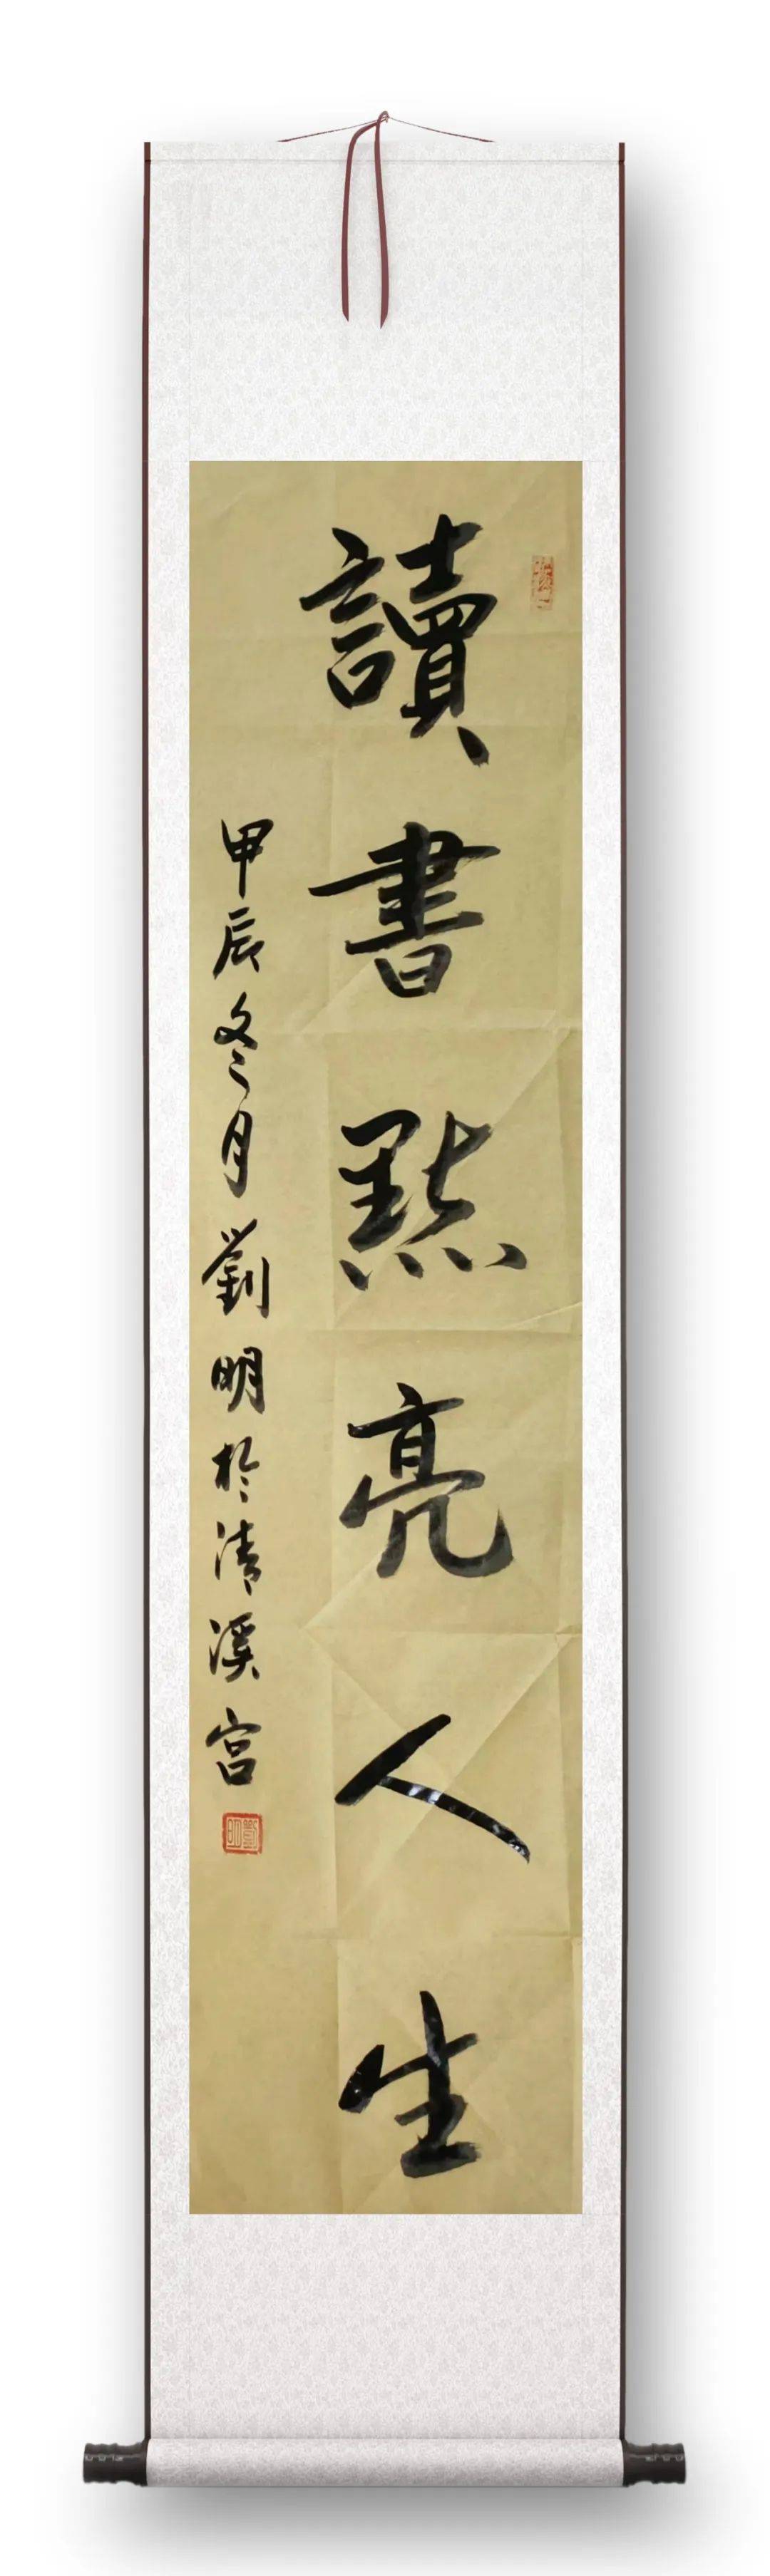 讀書點亮人生
甲辰冬月劉明於清溪宮
劉明